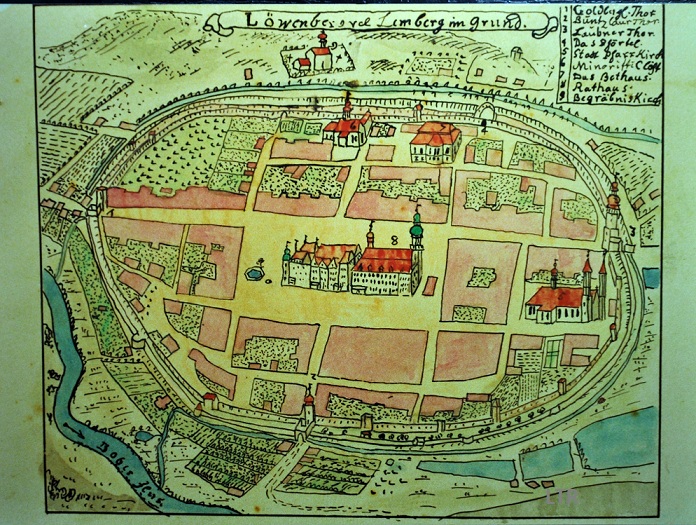 Löwenberg vel Lemberg im Grund.
1 Goldbug. Thor
2 Buntzlaur Thor
3 Laubner Thor
4 Das Pförtel
5 Stat Pfarr Kirch
6 Minoriti Clost
7 Das Bethaus.
8 Rathaus.
9 Begräbnis Kirch
8
3
Bober fluß